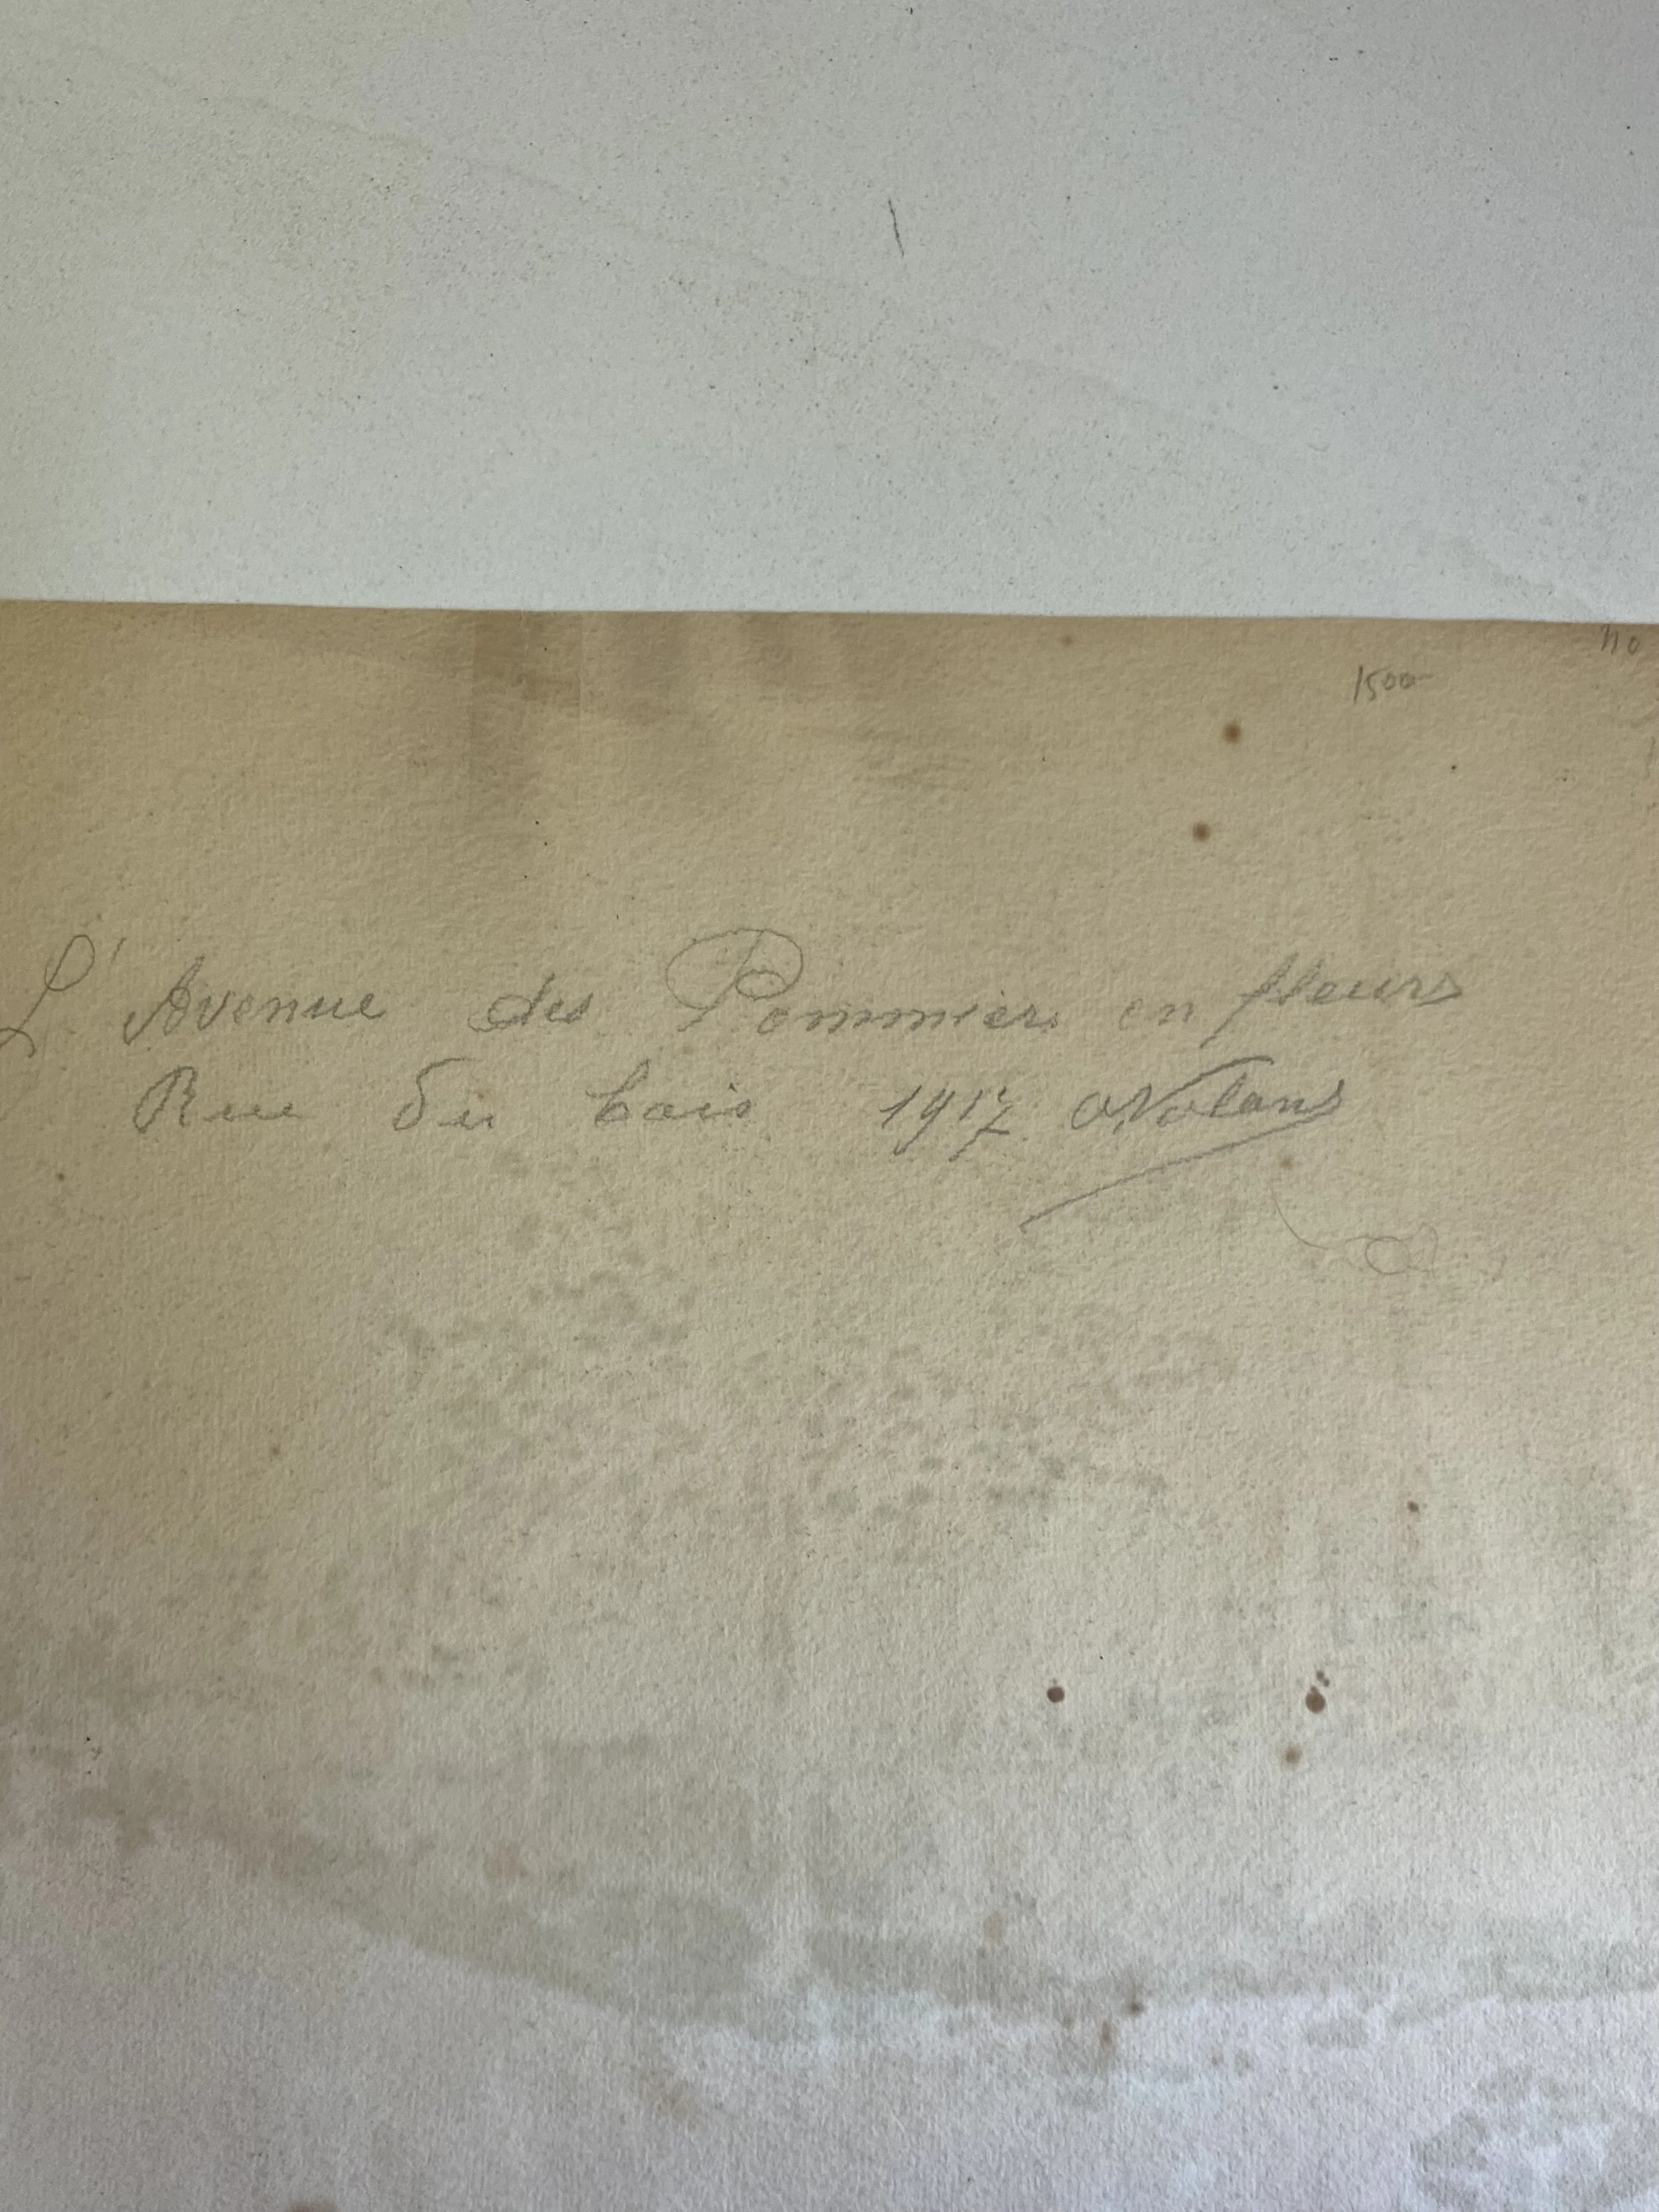 no
1500-
L'Avenue des Pommiers en fleurs
Rue du bois 1917